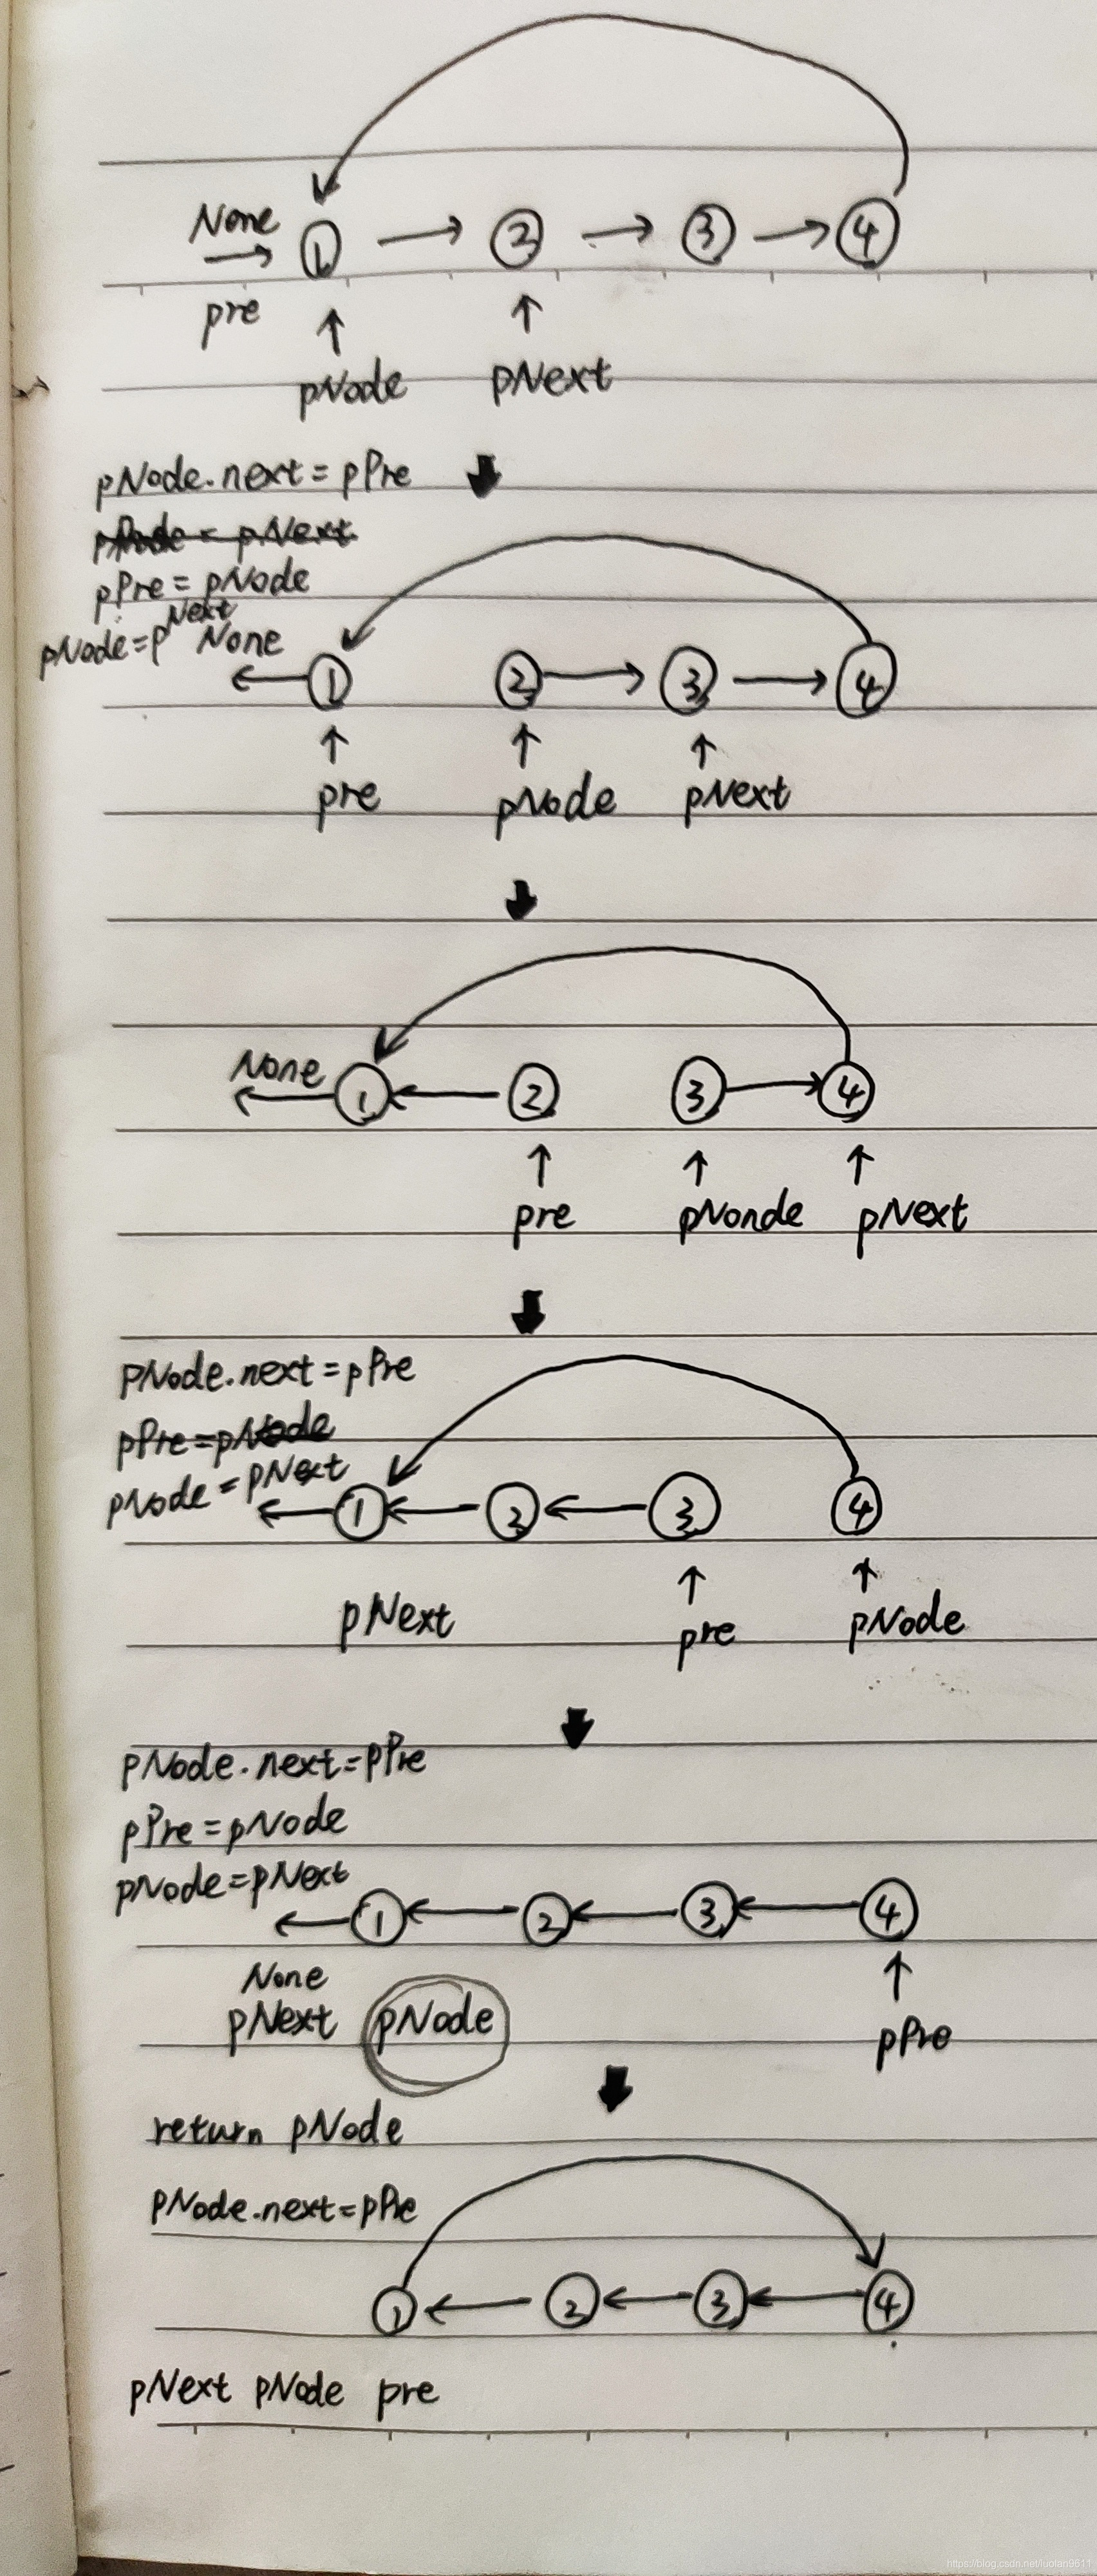 None
① ② ③ ④
pre
pNode pNext
pNode.next=pPre
pNode = pNext
pPre=pNode
pNode=pNext None
① ② ③ ④
pre pNode pNext
None
① ② ③ ④
pre pNonde pNext
pNode.next=pPre
pPre=pNode
pNode=pNext
① ② ③ ④
pNext pre pNode
pNode.next=pPre
pPre=pNode
pNode=pNext
① ② ③ ④
None
pNext pNode pPre
return pNode
pNode.next=pPre
① ② ③ ④
pNext pNode pre
https://blog.csdn.net/luolan9611